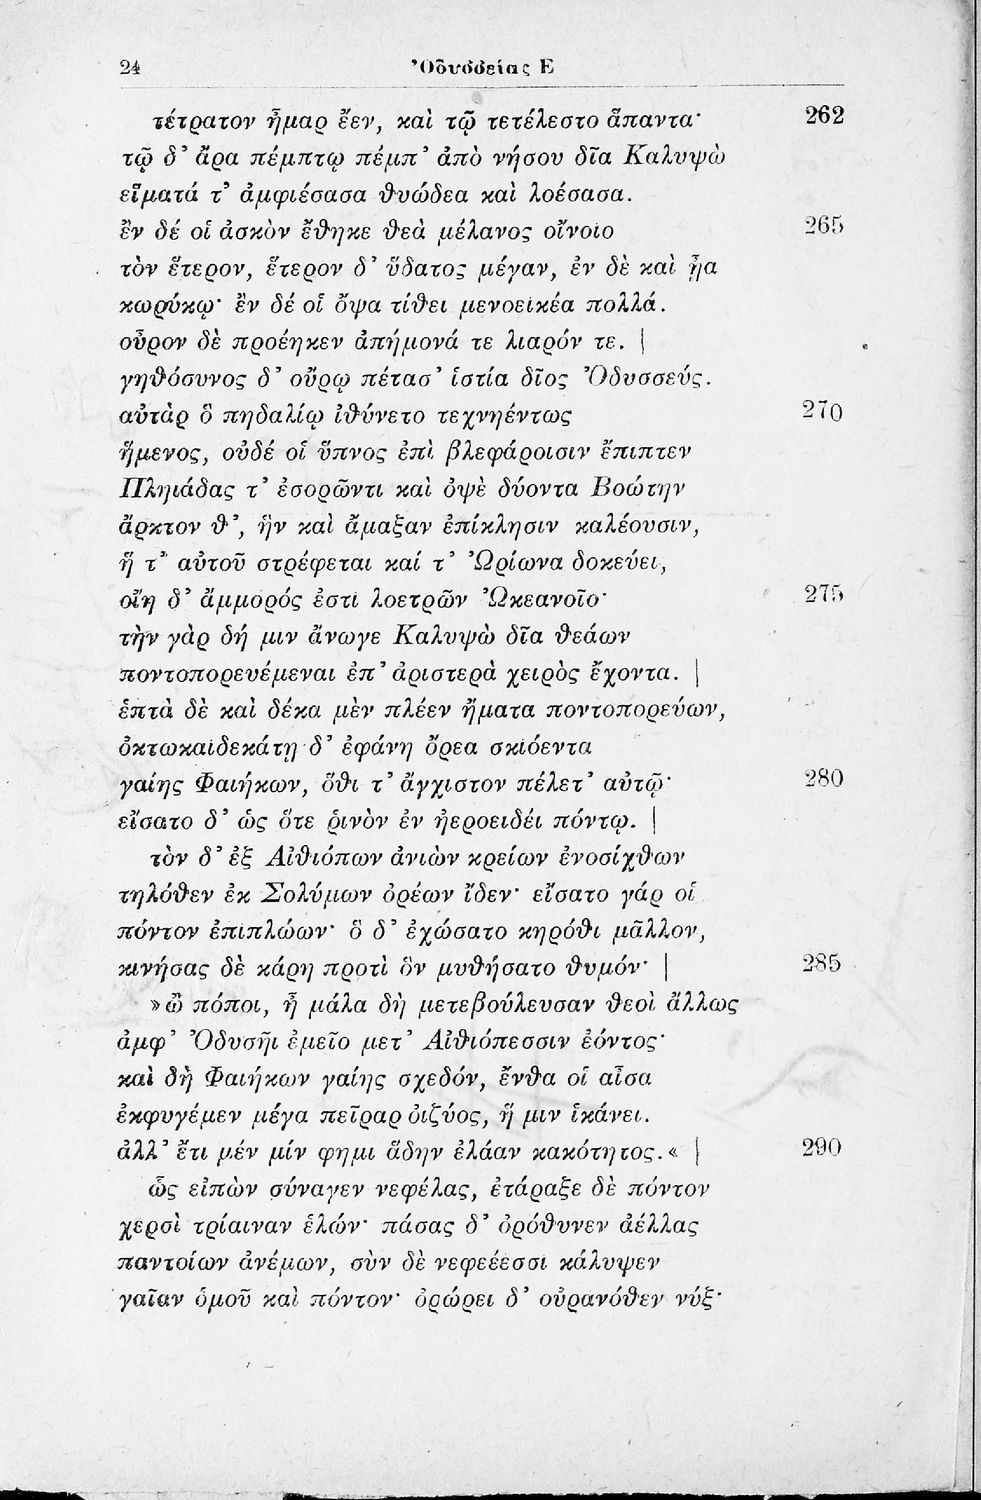 24 Ὀδυσσείας Ε
τέτρατον ἦμαρ ἔεν, καὶ τῷ τετέλεστο ἅπαντα· 262
τῷ δ’ ἄρα πέμπτῳ πέμπ’ ἀπὸ νήσου δῖα Καλυψὼ
εἵματά τ’ ἀμφιέσασα θυώδεα καὶ λοέσασα.
ἓν δέ οἱ ἀσκὸν ἔθηκε θεὰ μέλανος οἴνοιο 265
τὸν ἕτερον, ἕτερον δ’ ὕδατος μέγαν, ἐν δὲ καὶ ᾖα
κωρύκῳ· ἓν δέ οἱ ὄψα τίθει μενοεικέα πολλά.
οὖρον δὲ προέηκεν ἀπήμονά τε λιαρόν τε. |
γηθόσυνος δ’ οὔρῳ πέτασ’ ἱστία δῖος Ὀδυσσεύς.
αὐτὰρ ὃ πηδαλίῳ ἰθύνετο τεχνηέντως 270
ἥμενος, οὐδέ οἱ ὕπνος ἐπὶ βλεφάροισιν ἔπιπτεν
Πληιάδας τ’ ἐσορῶντι καὶ ὀψὲ δύοντα Βοώτην
ἄρκτον θ’, ἣν καὶ ἅμαξαν ἐπίκλησιν καλέουσιν,
ἥ τ’ αὐτοῦ στρέφεται καί τ’ Ὠρίωνα δοκεύει,
οἴη δ’ ἄμμορός ἐστι λοετρῶν Ὠκεανοῖο· 275
τὴν γὰρ δή μιν ἄνωγε Καλυψὼ δῖα θεάων
ποντοπορευέμεναι ἐπ’ ἀριστερὰ χειρὸς ἔχοντα. |
ἑπτὰ δὲ καὶ δέκα μὲν πλέεν ἤματα ποντοπορεύων,
ὀκτωκαιδεκάτῃ δ’ ἐφάνη ὄρεα σκιόεντα
γαίης Φαιήκων, ὅθι τ’ ἄγχιστον πέλετ’ αὐτῷ· 280
εἴσατο δ’ ὡς ὅτε ῥινὸν ἐν ἠεροειδέι πόντῳ. |
τὸν δ’ ἐξ Αἰθιόπων ἀνιὼν κρείων ἐνοσίχθων
τηλόθεν ἐκ Σολύμων ὀρέων ἴδεν· εἴσατο γάρ οἱ
πόντον ἐπιπλώων· ὃ δ’ ἐχώσατο κηρόθι μᾶλλον,
κινήσας δὲ κάρη προτὶ ὃν μυθήσατο θυμόν· | 285
»ὢ πόποι, ἦ μάλα δὴ μετεβούλευσαν θεοὶ ἄλλως
ἀμφ’ Ὀδυσῆι ἐμεῖο μετ’ Αἰθιόπεσσιν ἐόντος·
καὶ δὴ Φαιήκων γαίης σχεδόν, ἔνθα οἱ αἶσα
ἐκφυγέμεν μέγα πεῖραρ ὀιζύος, ἥ μιν ἱκάνει.
ἀλλ’ ἔτι μέν μίν φημι ἅδην ἐλάαν κακότητος.« | 290
ὣς εἰπὼν σύναγεν νεφέλας, ἐτάραξε δὲ πόντον
χερσὶ τρίαιναν ἑλών· πάσας δ’ ὀρόθυνεν ἀέλλας
παντοίων ἀνέμων, σὺν δὲ νεφέεσσι κάλυψεν
γαῖαν ὁμοῦ καὶ πόντον· ὀρώρει δ’ οὐρανόθεν νύξ·